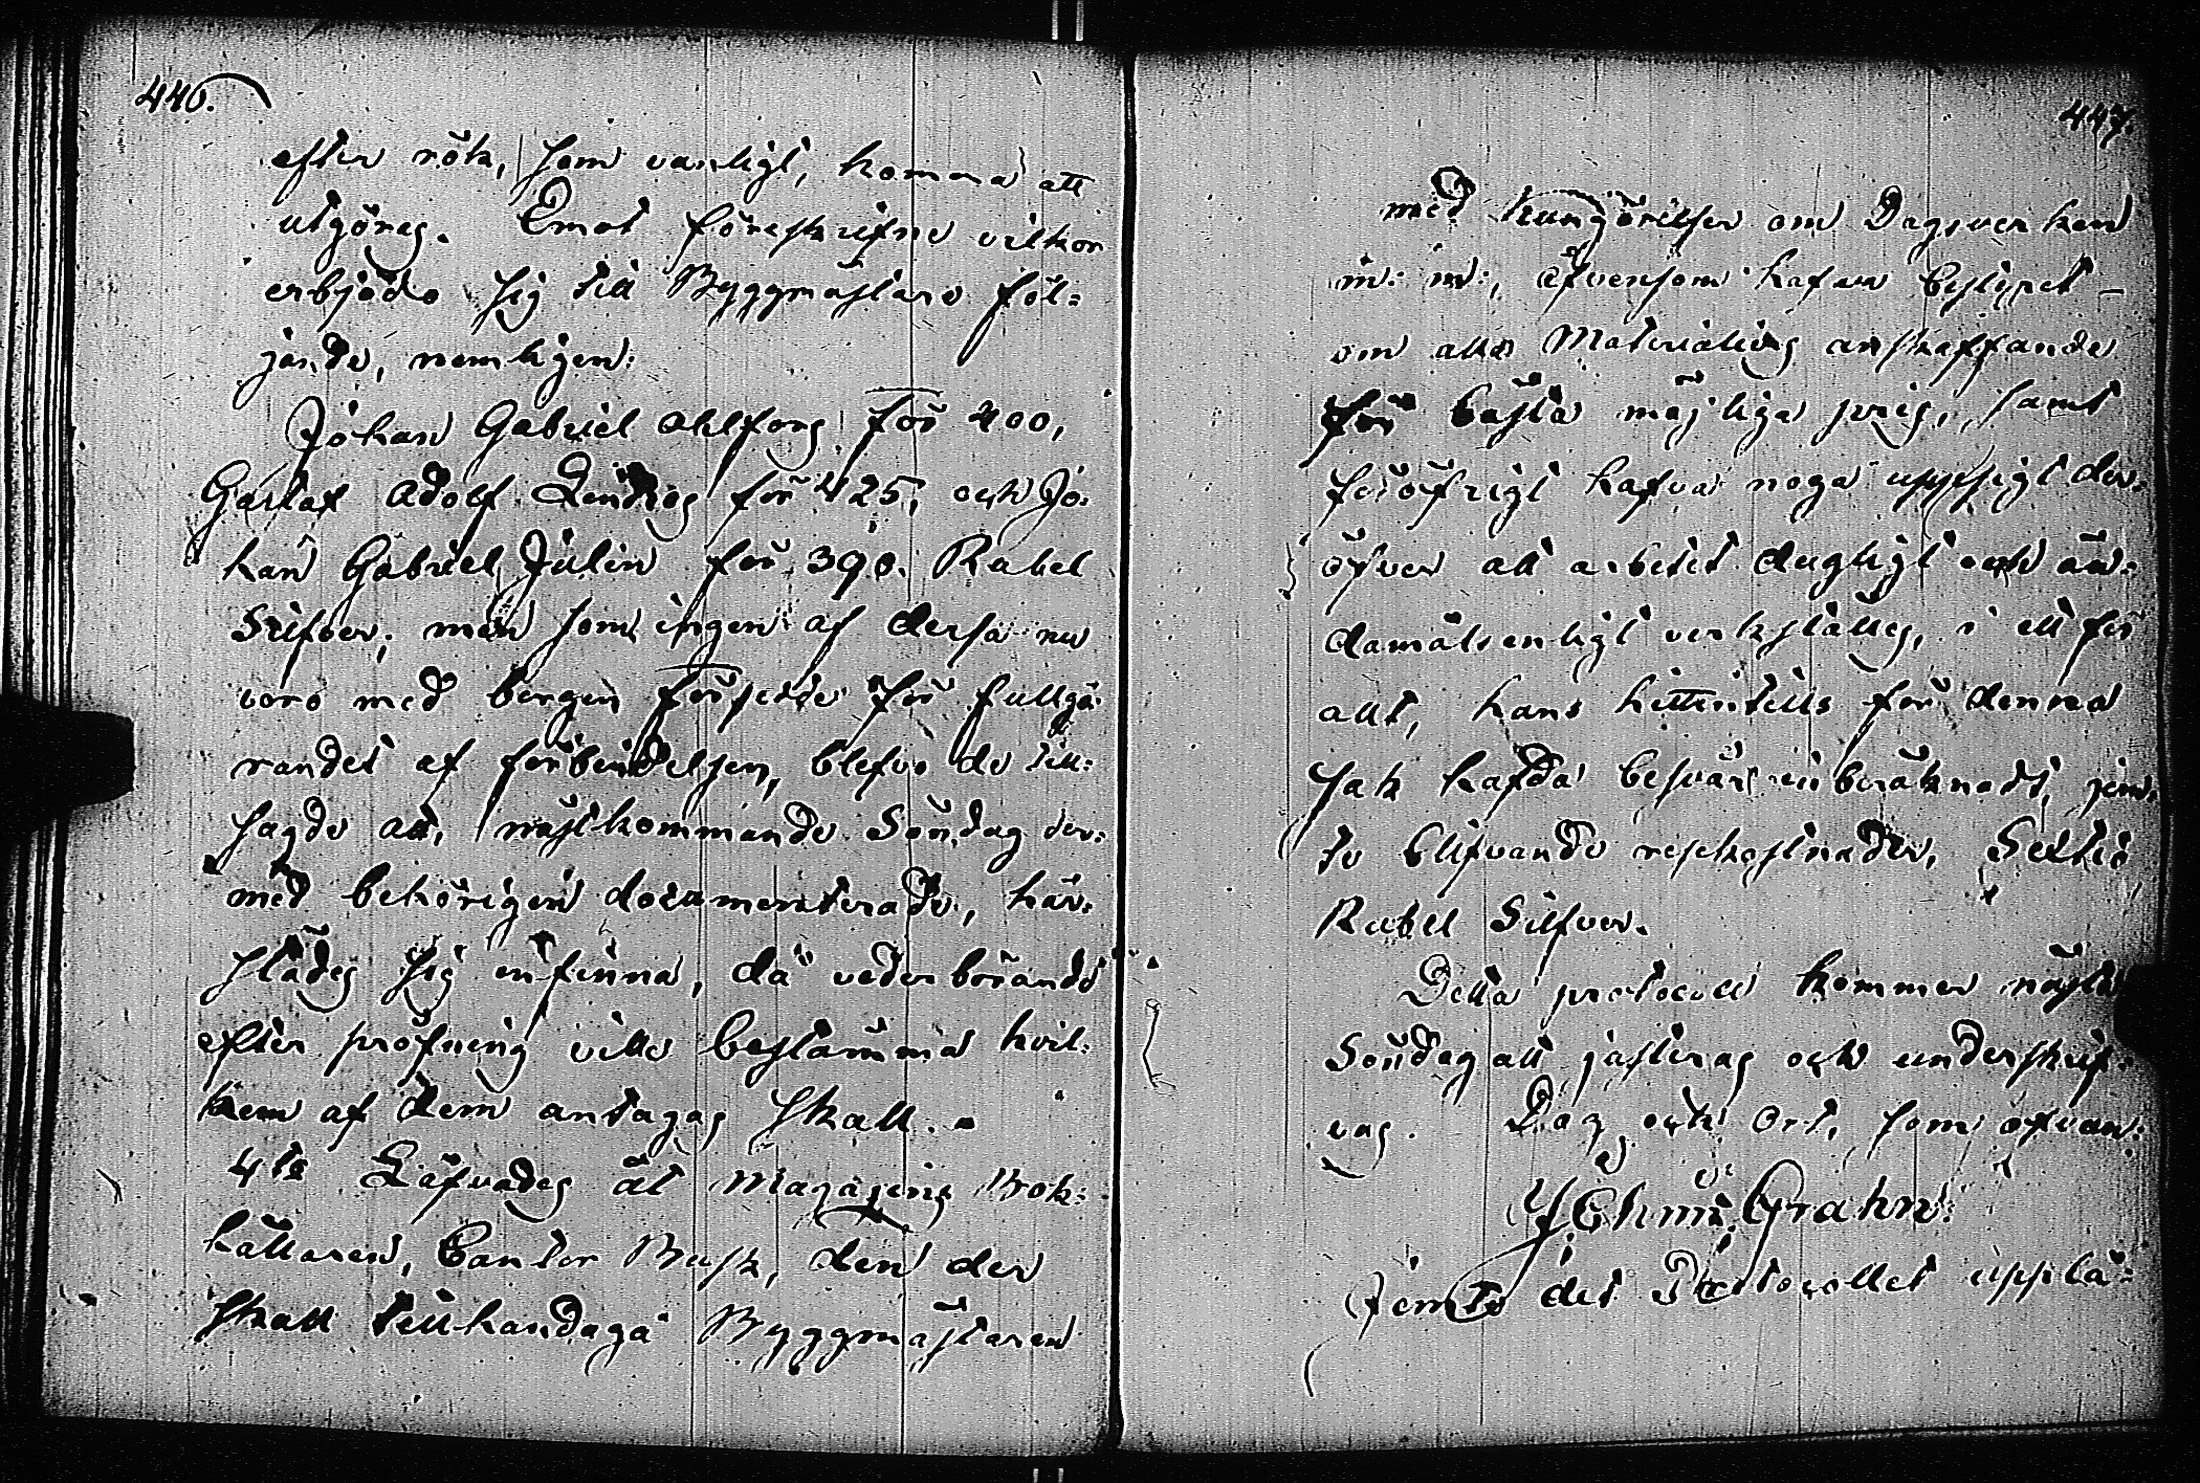 446.
efter rök, som vanligt, komma att
utgöras. Emot föreskrifne vilkor
erbjödo sig till Byggmästare föl-
jande, nemligen:
Johan Gabriel Ahlfors för 400,
Gustaf Adolf Lindroos för 425, och Jo-
han Gabriel Julin för 390. Rubel
Silfver; men som ingen af dessa nu
voro med borgen försedde för fullgö-
randet af förbindelsen, blefvo de till-
sagde att, nästkommande Söndag der-
med behörigen documenterade, här-
städes sig infinna, då vederbörande
efter pröfning ville bestämma hvil-
ken af dem antagas skall. -
4to Läfvades åt Magazins Bok-
hållaren, Cantor Busk, den der
skall tillhandagå Byggmästaren
447.
med kungörelser om Dagsverken
m: m:, äfvensom hafva bestyret
om alla Materialiers anskaffande
för bästa möjliga pris, samt
föröfrigt hafva noga uppsigt der-
öfver att arbetet dugligt och än-
damålsenligt verkställes, i ett för
allt, hans hittintills för denna
sak hafda besvär inberäknadt, jem-
te blifvande resekostnader, Sextio
Rubel Silfver.
Detta protocoll kommer nästa
Söndag att justeras och underskrif-
vas. Dag och Ort, som ofvan:
Grahn.
Jemte det Protocollet upplä-